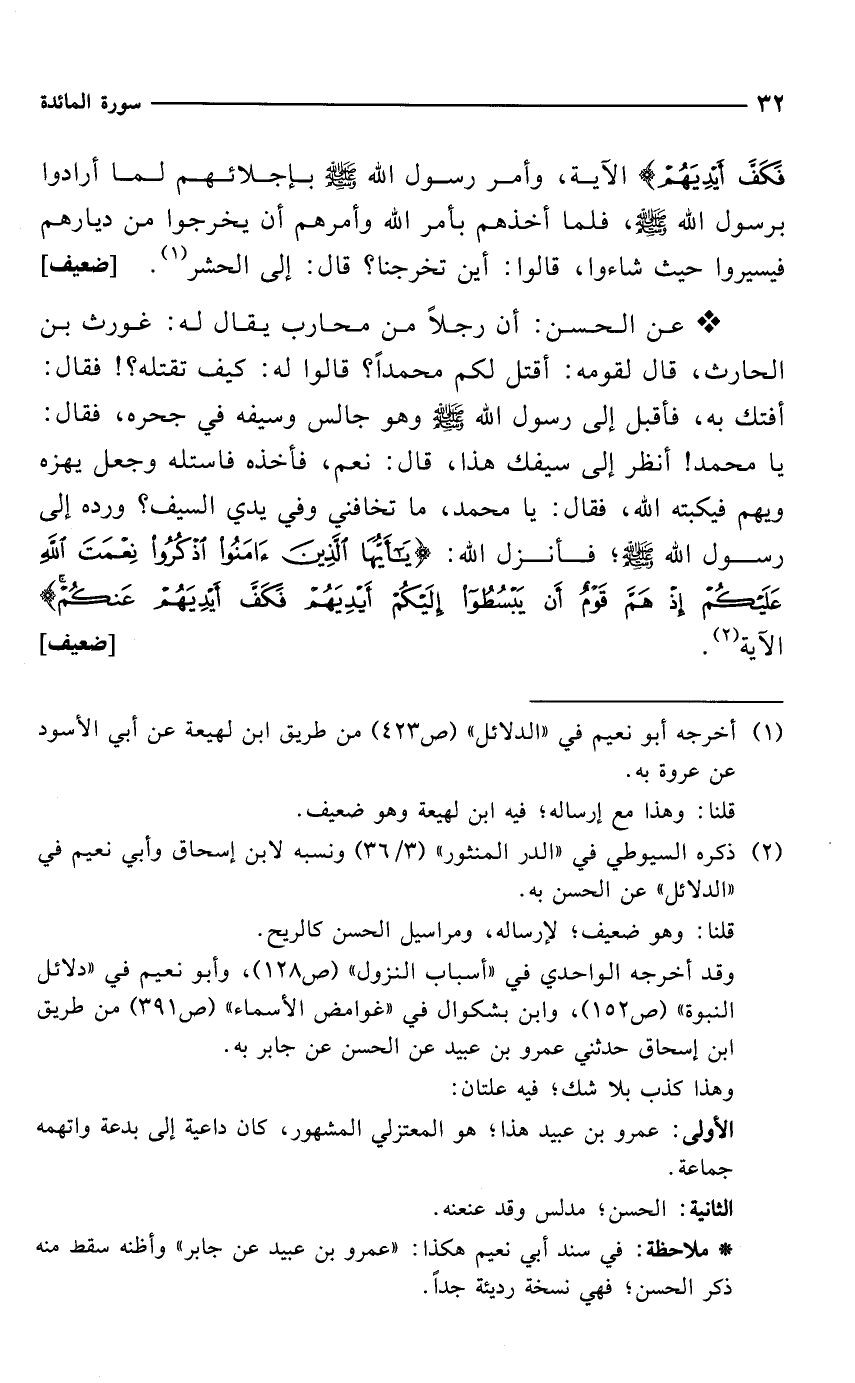 ٣٢ سورة المائدة
فَكَفَّ أَيْدِيَهُمْ﴾ الآية، وأمر رسول الله ﷺ بإجلائهم لما أرادوا
برسول الله ﷺ، فلما أخذهم بأمر الله وأمرهم أن يخرجوا من ديارهم
فيسيروا حيث شاءوا، قالوا: أين تخرجنا؟ قال: إلى الحشر(١). [ضعيف]
❖ عن الحسن: أن رجلاً من محارب يقال له: غورث بن
الحارث، قال لقومه: أقتل لكم محمداً؟ قالوا له: كيف تقتله؟! فقال:
أفتك به، فأقبل إلى رسول الله ﷺ وهو جالس وسيفه في حجره، فقال:
يا محمد! أنظر إلى سيفك هذا، قال: نعم، فأخذه فاستله وجعل يهزه
ويهم فيكبته الله، فقال: يا محمد، ما تخافني وفي يدي السيف؟ ورده إلى
رسول الله ﷺ؛ فأنزل الله: ﴿يَٰٓأَيُّهَا ٱلَّذِينَ ءَامَنُوا۟ ٱذْكُرُوا۟ نِعْمَتَ ٱللَّهِ
عَلَيْكُمْ إِذْ هَمَّ قَوْمٌ أَن يَبْسُطُوٓا۟ إِلَيْكُمْ أَيْدِيَهُمْ فَكَفَّ أَيْدِيَهُمْ عَنكُمْۖ﴾
الآية(٢). [ضعيف]
(١) أخرجه أبو نعيم في «الدلائل» (ص٤٢٣) من طريق ابن لهيعة عن أبي الأسود
عن عروة به.
قلنا: وهذا مع إرساله؛ فيه ابن لهيعة وهو ضعيف.
(٢) ذكره السيوطي في «الدر المنثور» (٣/ ٣٦) ونسبه لابن إسحاق وأبي نعيم في
«الدلائل» عن الحسن به.
قلنا: وهو ضعيف؛ لإرساله، ومراسيل الحسن كالريح.
وقد أخرجه الواحدي في «أسباب النزول» (ص١٢٨)، وأبو نعيم في «دلائل
النبوة» (ص١٥٢)، وابن بشكوال في «غوامض الأسماء» (ص٣٩١) من طريق
ابن إسحاق حدثني عمرو بن عبيد عن الحسن عن جابر به.
وهذا كذب بلا شك؛ فيه علتان:
الأولى: عمرو بن عبيد هذا؛ هو المعتزلي المشهور، كان داعية إلى بدعة واتهمه
جماعة.
الثانية: الحسن؛ مدلس وقد عنعنه.
* ملاحظة: في سند أبي نعيم هكذا: «عمرو بن عبيد عن جابر» وأظنه سقط منه
ذكر الحسن؛ فهي نسخة رديئة جداً.